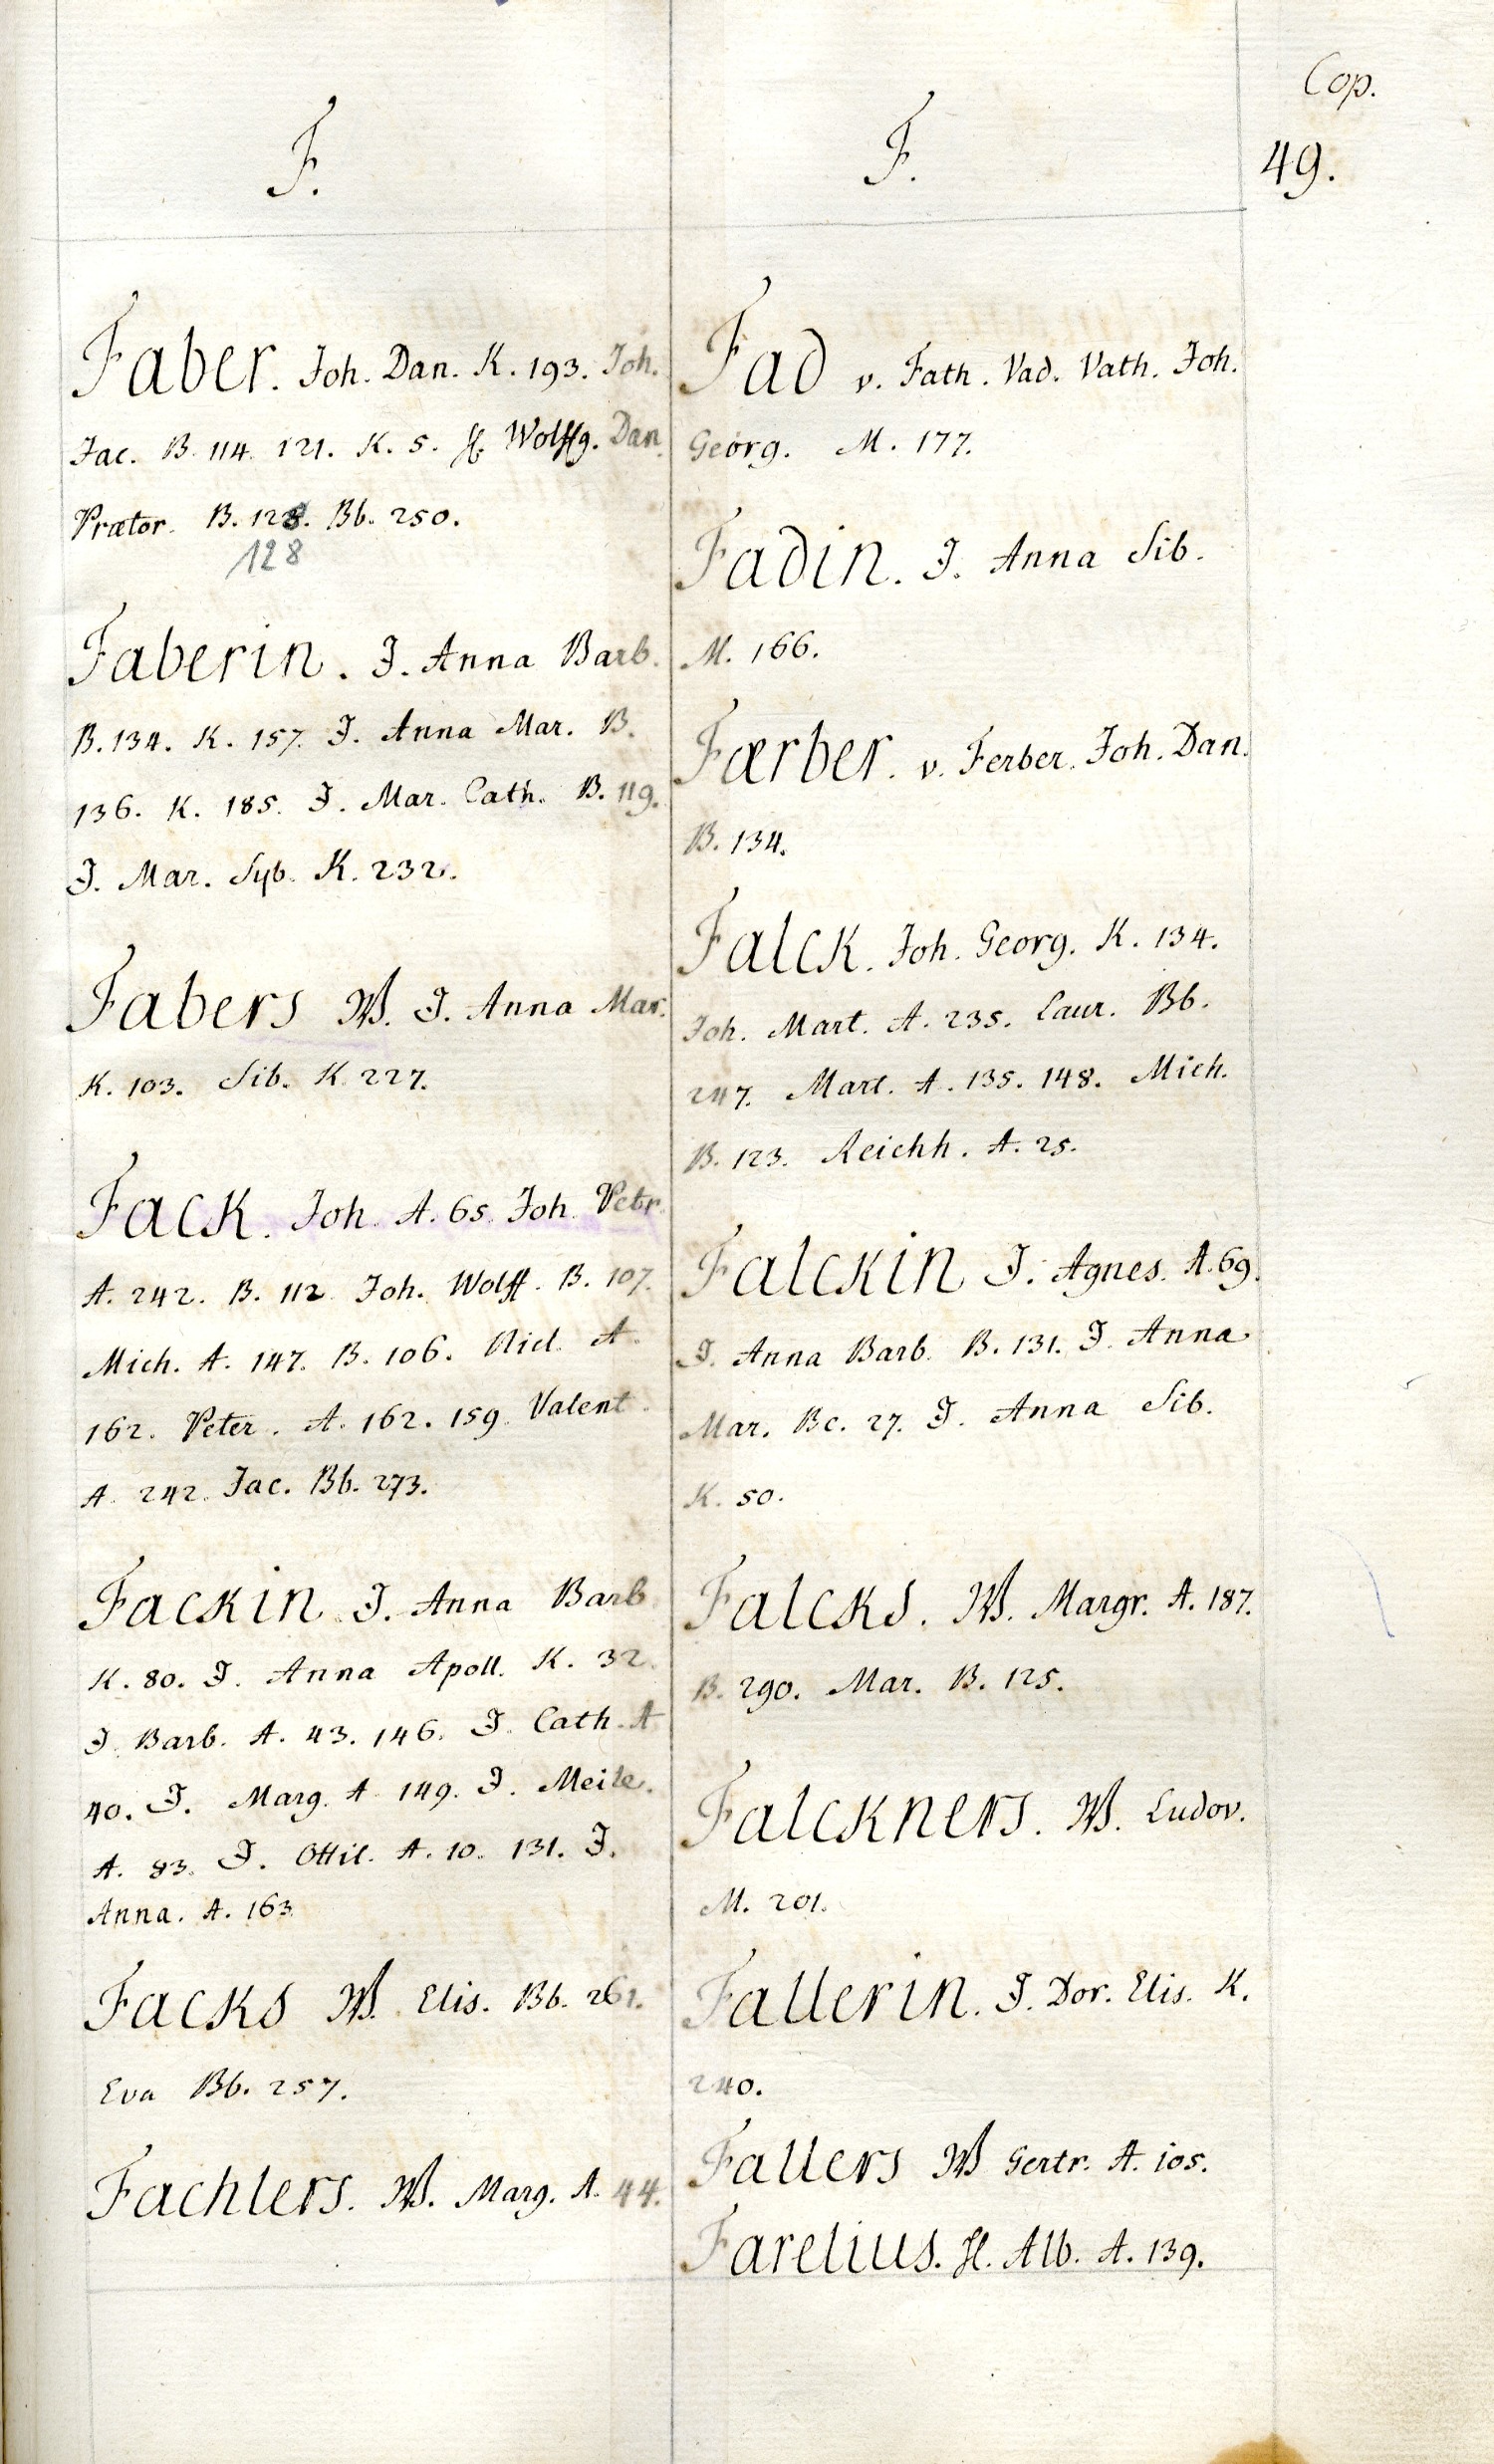 Cop.
49.
F.
Faber. Joh. Dan. K. 193. Joh.
Jac. B. 114. 121. K. 5. H. Wolffg. Dan.
Prætor. B. 128. Bb. 250.
128
Faberin. J. Anna Barb.
B. 134. K. 157. J. Anna Mar. B.
136. K. 185. J. Mar. Cath. B. 119.
J. Mar. Syb. K. 232.
Fabers W. J. Anna Mar.
K. 103. Sib. K. 227.
Fack. Joh. A. 65. Joh. Petr.
A. 242. B. 112. Joh. Wolff. B. 107.
Mich. A. 147. B. 106. Nicl. A.
162. Peter. A. 162. 159. Valent.
A. 242. Jac. Bb. 273.
Fackin J. Anna Barb.
K. 80. J. Anna Apoll. K. 32.
J. Barb. A. 43. 146. J. Cath. A
40. J. Marg. A. 149. J. Meile.
A. 83. J. Ottil. A. 10. 131. J.
Anna. A. 163.
Facks W. Elis. Bb. 261.
Eva Bb. 257.
Fachlers. W. Marg. A. 44.
F.
Fad v. Fath. Vad. Vath. Joh.
Georg. M. 177.
Fadin. J. Anna Sib.
M. 166.
Færber. v. Ferber. Joh. Dan.
B. 134.
Falck. Joh. Georg. K. 134.
Joh. Mart. A. 235. Laur. Bb.
247. Mart. A. 135. 148. Mich.
B. 123. Reichh. A. 25.
Falckin J. Agnes. A. 69.
J. Anna Barb. B. 131. J. Anna
Mar. Bc. 27. J. Anna Sib.
K. 50.
Falcks. W. Margr. A. 187.
B. 290. Mar. B. 125.
Falckners. W. Ludov.
M. 201.
Fallerin. J. Dor. Elis. K.
240.
Fallers W Gertr. A. 105.
Farelius. H. Alb. A. 139.